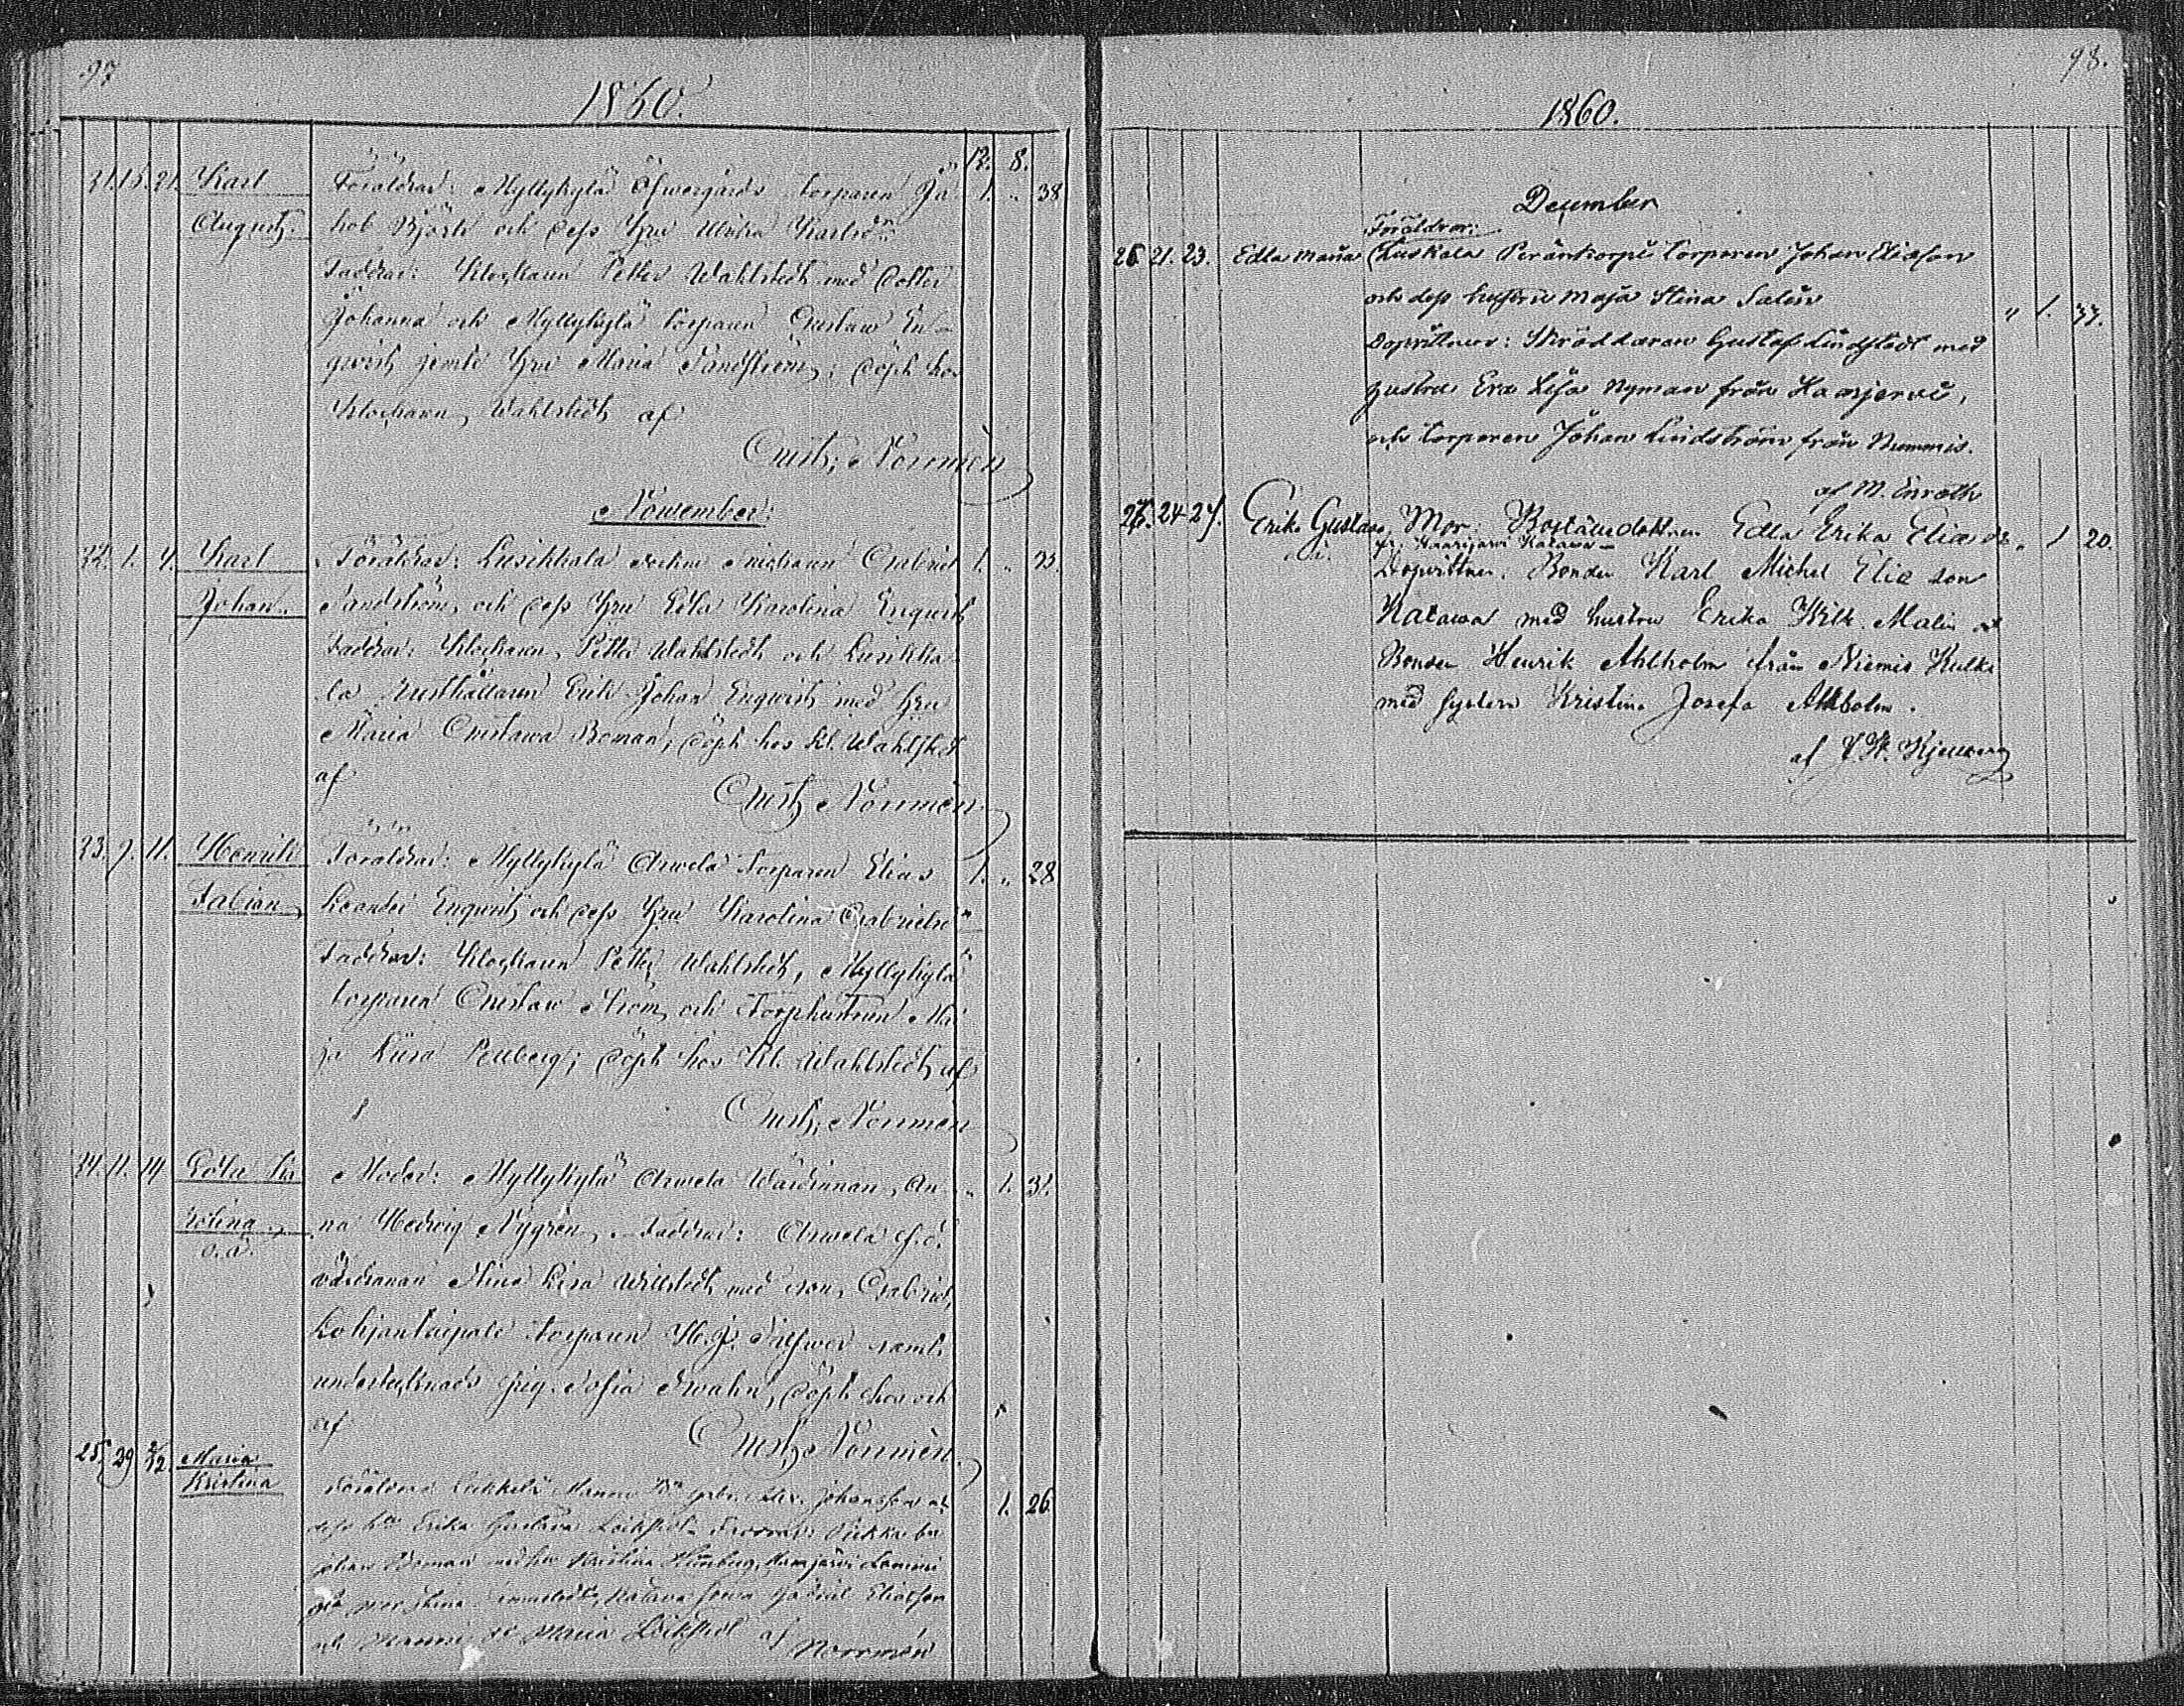 97
1860.
12. 8.
31. 15. 21. Karl Föräldrar: Myllykylä Öfwergårds torparen Ja- 1. " 38
August. kob Björk och dess Hru Ulrika Karlsdr
Faddrar: Klockaren Petter Wahlstedt med dotter
Johanna och Myllykylä torparen Gustaw En-
qwist jemte Hru Maria Sandström; döpt hos
Klockaren Wahlstedt af
Gust. Norrmén
November:
32. 1. 4. Karl Föräldrar: Lusikkala Gabriel 1. "
Johan. Sandström och dess Hru Edla Karolina Enqwist
Faddrar: Klockaren Petter Wahlstedt och Lusikka-
la Rusthållaren Erik Johan Enqwist med Hru
Maria Gustawa Boman; döpt hos Kl. Wahlstedt
af
Gust. Norrmén
33. 9. 11. Henrik Föräldrar: Myllykylä Arwela torparen Elias 1. " 28
Fabian Leander Enqwist och dess Hru Karolina Gabrielsdr
Faddrar: Klockaren Petter Wahlstedt, Myllykylä
torparen Gustaw Ström och Torphustrun Ma-
ja Lüsa Pellberg; döpt hos Kl. Wahlstedt af
Gust. Norrmén
34. 11. 14. Edla Ka- Moder: Myllykylä Arwela Wärdinnan, An- " 1. 31.
rolina na Hedwig Nygrén. Faddrar: Arwela f.d.
o.ä.
värdinnan Stina Lisa Willstedt med son Gabriel,
Lohjantaipale torparen H.J. Silfwer samt
undertecknads pig. Sofia Swahn, döpt hos och
af
Gust. Norrmén.
25. 29 2/12. Maria
Kristina Föräldrar: Manni Johansson och 1. 26.
dess Hu Erika Gustava Löckström
Johan Boman med hu Kristina Hamjärvi Lammi
Stina Katava sonen Gabriel Eliasson
och Manni Maria af Norrmén
98.
1860.
December
Föräldrar:
26 21. 23. Edla Maria Luskala Peränkorpi torparen Johan Eliasson
och dess hustru Maja Stina Salin " 1. 37.
Dopvittnen: Skräddaren Gustaf Lindstedt med
hustru Eva Lisa Nyman från Haarjerwi,
och torparen Johan Lindström från Nummis.
af M. Enroth
27. 24 27. Erika Gustava Mor: Bostälsdottren Edla Erika Elia dr " 1 20.
o.ä. fr. Haarijärwi Katawa
Dopvittnen: Bonden Karl Michel Elia son
Katawa med hustru Erika Wilh. Malin o
Bonden Henrik Ahlholm från Niemis Kulki
med system Kristina Josefa Ahlholm.
af